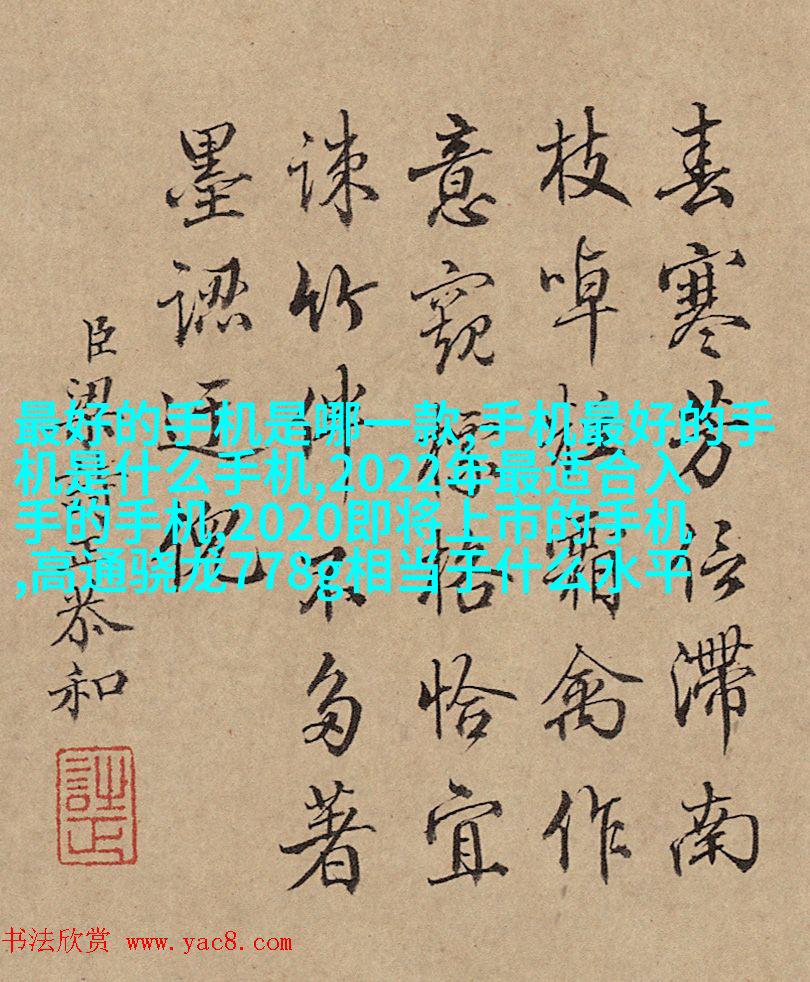 春寒芳信滞南
枝啅霜禽作
意窺標格恰宜
疎竹伴不多著
墨認迂倪
臣梁詩正恭和
最好的手机是哪一款,手机最好的手
机是什么手机,2022年最适合入
手的手机,2020即将上市的手机
,高通骁龙778g相当于什么水平
书法欣赏 www.yac8.com